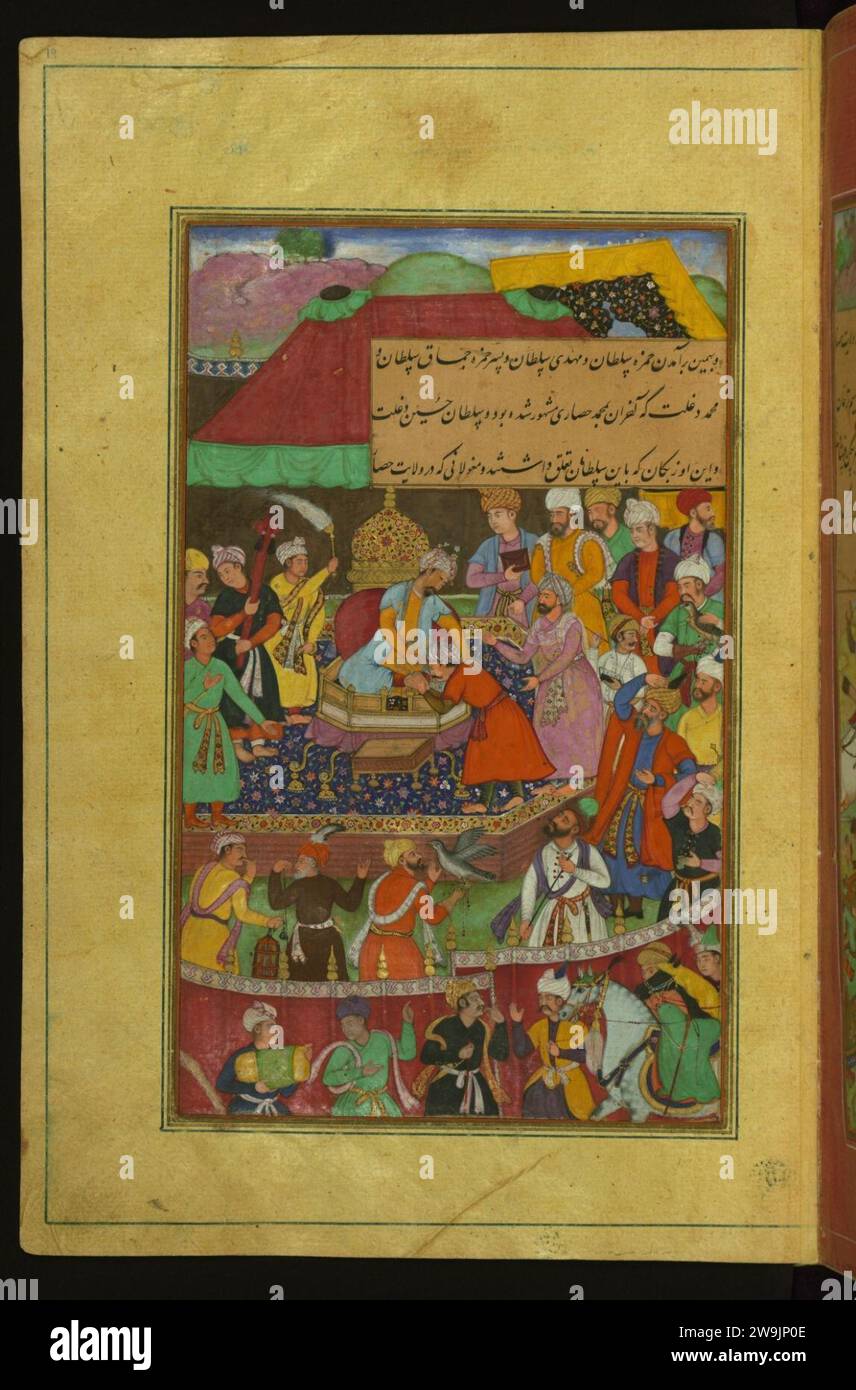 و بهمین برآمدن حمزه سلطان و مهدی سلطان و پسر حمزه جماق سلطان و
محمد دغلت که آخران بمحمد حصاری مشهور شده بود و سلطان حسین دغلت
و این اوزبکان که باین سلطانان تعلق داشتند و مغولانی که در ولایت حصا
alamy
Image ID: W9JP0E
www.alamy.com